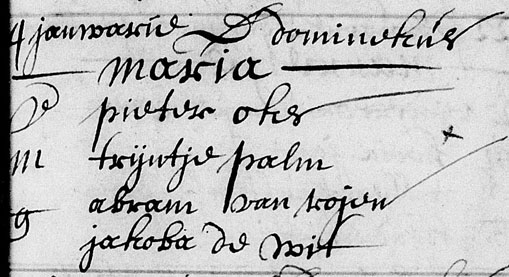 4 januwarie D dominekus
maria
P pieter okes
m trijntje palm
g abram van rojen
jakoba de wit